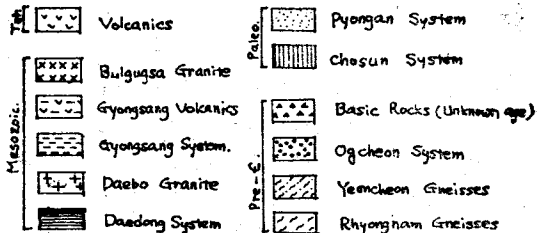 Teh
Volcanics
Mesozoic.
Bulgugsa Granite
Gyongsang Volcanics
Gyongsang System.
Daebo Granite
Daedong System
Paleo.
Pyongan System
Chosun System
Pre-Є.
Basic Rocks (Unknown age)
Ogcheon System
Yemcheon Gneisses
Rhyongnam Gneisses